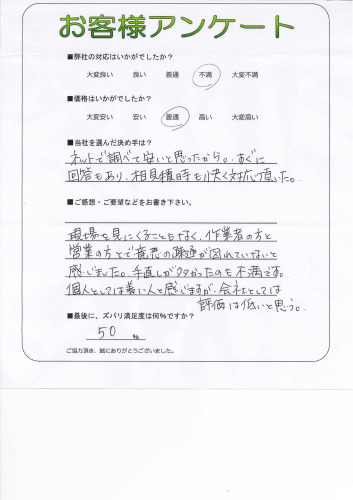 お客様アンケート
■弊社の対応はいかがでしたか?
大変良い 良い 普通 不満 大変不満
■価格はいかがでしたか?
大変安い 安い 普通 高い 大変高い
■当社を選んだ決め手は?
ネットで調べて安いと思ったから。すぐに
回答もあり、相見積時も快く対応頂いた。
■ご感想・ご要望などをお書き下さい。
現場を見にくることもなく、作業者の方と
営業の方とで意思の疎通が図れていないと
感じました。手直しが多かったのも不満です。
個人としては善い人と感じますが、会社としては
評価は低いと思う。
■最後に、ズバリ満足度は何%ですか?
50 %
ご協力頂き、誠にありがとうございました。